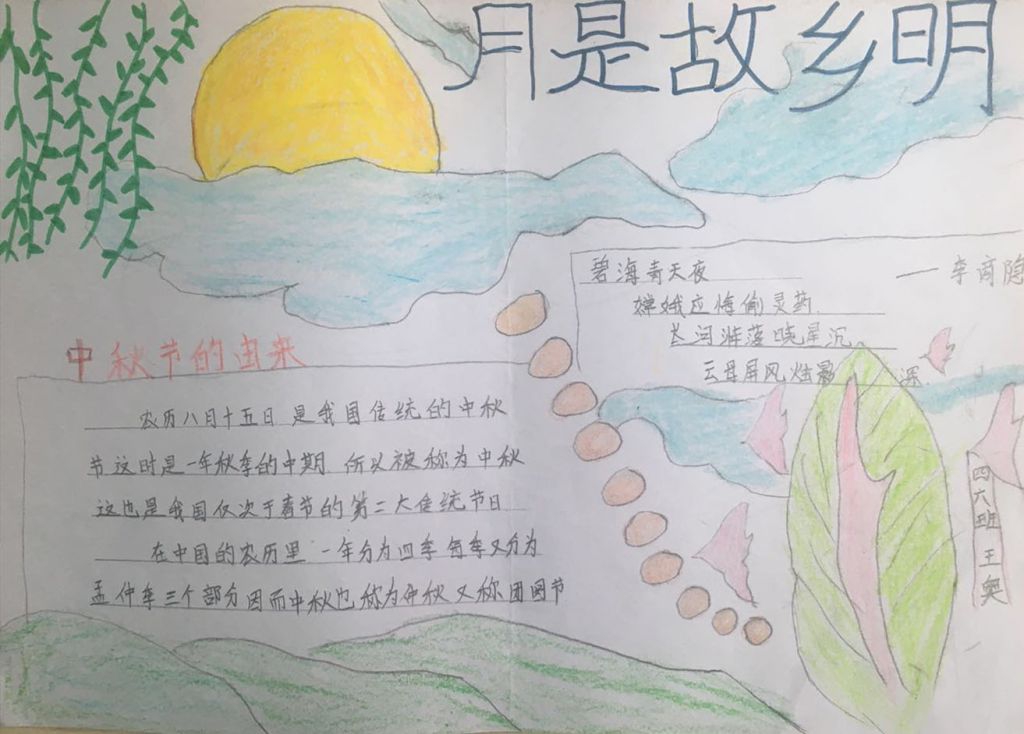 月是故乡明
碧海青天夜 — 李商隐
嫦娥应悔偷灵药.
长河渐落晓星沉。
云母屏风烛影 深
中秋节的由来
农历八月十五日 是我国传统的中秋
节 这时是一年秋季的中期. 所以被称为中秋
这也是我国仅次于春节的第二大传统节日
在中国的农历里 一年分为四季 每季又分为
孟仲季三个部分 因而中秋也称为仲秋 又称团圆节
四六班 王奥